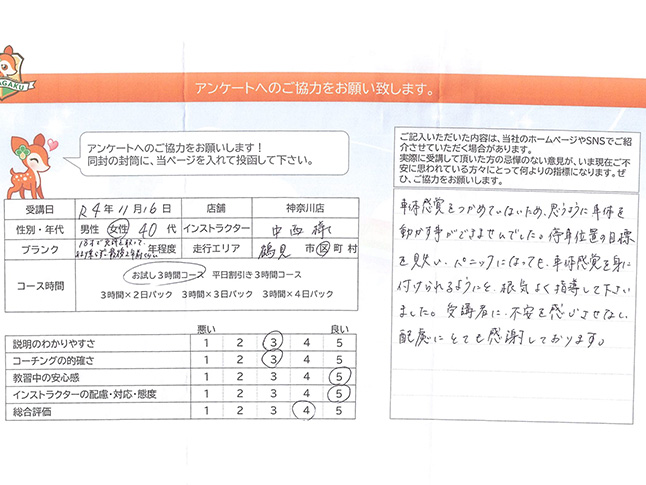 AGAKU
アンケートへのご協力をお願い致します。
アンケートへのご協力をお願いします！
同封の封筒に、当ページを入れて投函して下さい。
ご記入いただいた内容は、当社のホームページやSNSでご紹
介させていただく場合があります。
実際に受講して頂いた方の忌憚のない意見が、いま現在ご不
安に思われている方々にとって何よりの指標になります。ぜ
ひ、ご協力をお願いします。
受講日 R4年11月16日 店舗 神奈川店
性別・年代 男性 女性 40代 インストラクター 中西
ブランク 18才で免許を取って、 年程度 走行エリア 鶴見 市区町村
コース時間 お試し3時間コース 平日割引き3時間コース
3時間×2日パック 3時間×3日パック 3時間×4日パック
悪い 良い
説明のわかりやすさ 1 2 3 4 5
コーチングの的確さ 1 2 3 4 5
教習中の安心感 1 2 3 4 5
インストラクターの配慮・対応・態度 1 2 3 4 5
総合評価 1 2 3 4 5
車体感覚をつかめていないため、思うように車体を
動かす事ができませんでした。停車位置の目標
を見失い、パニックになっても、車体感覚を身に
付けられるようにと、根気よく指導して下さい
ました。受講者に、不安を感じさせない
配慮にとても感謝しております。